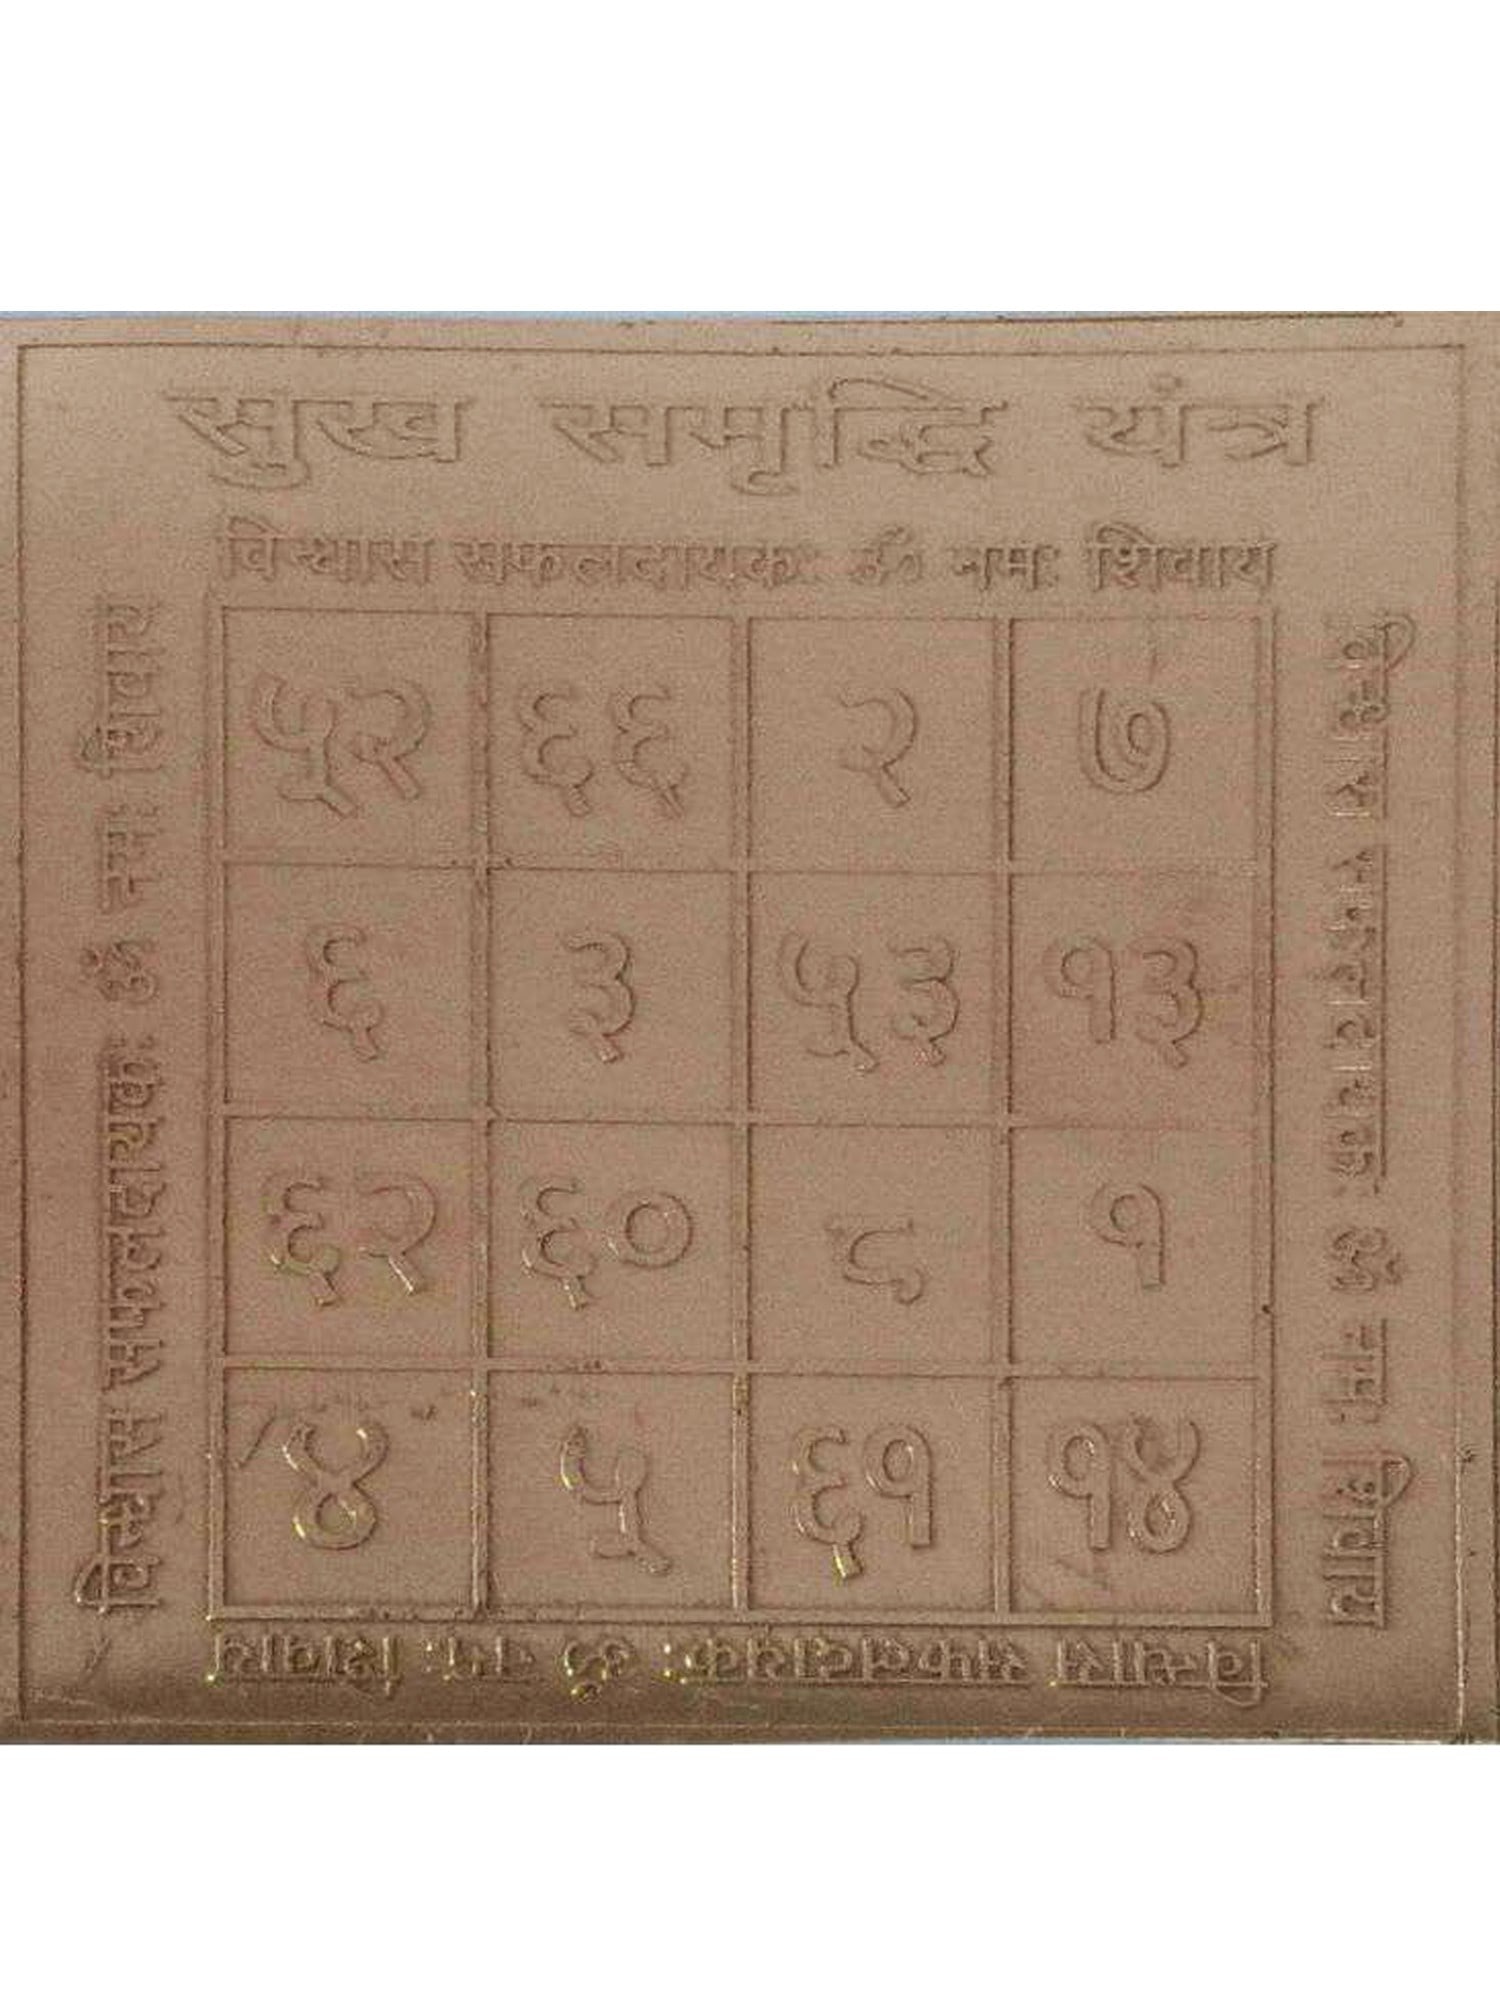 सुख समृद्धि यंत्र
विन्यास सफलदायकः ॐ नमः शिवाय
विन्यास सफलदायकः ॐ नमः शिवाय
५२ ६६ २ ७
६ ३ ५३ १३
६२ ६० ८ १
४ ५ ६१ १४
विन्यास सफलदायकः ॐ नमः शिवाय
विन्यास सफलदायकः ॐ नमः शिवाय